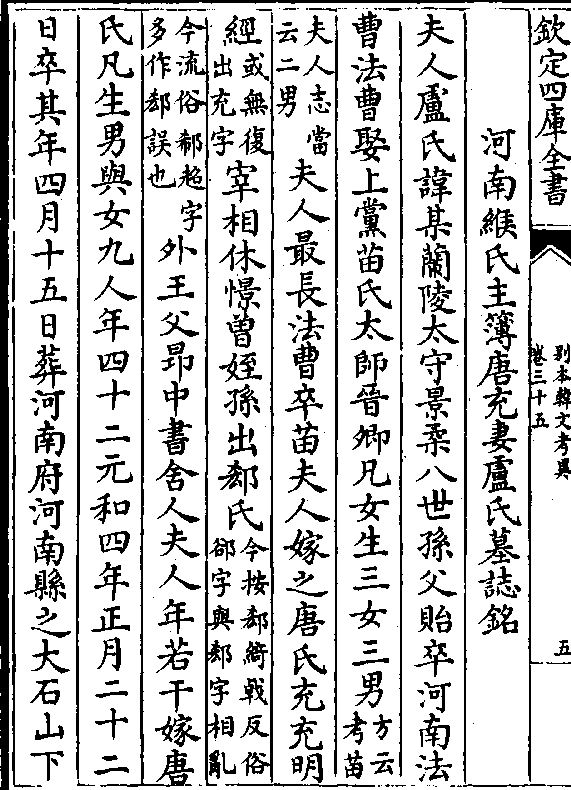 欽定四庫全書
別本韓文考異
卷三十五
五
河南緱氏主簿唐充妻盧氏墓誌銘
夫人盧氏諱某蘭陵太守景柔八世孫父貽卒河南法
曹法曹娶上黨苗氏太師晉卿凡女生三女三男方云
考苗
夫人志當
云二男夫人最長法曹卒苗夫人嫁之唐氏充充明
經或無復
出充字宰相休憬曾姪孫出郄氏今按郄綺戟反俗
郤字與郄字相亂
今流俗郗超字
多作郄誤也外王父昂中書舍人夫人年若干嫁唐
氏凡生男與女九人年四十二元和四年正月二十二
日卒其年四月十五日葬河南府河南縣之大石山下